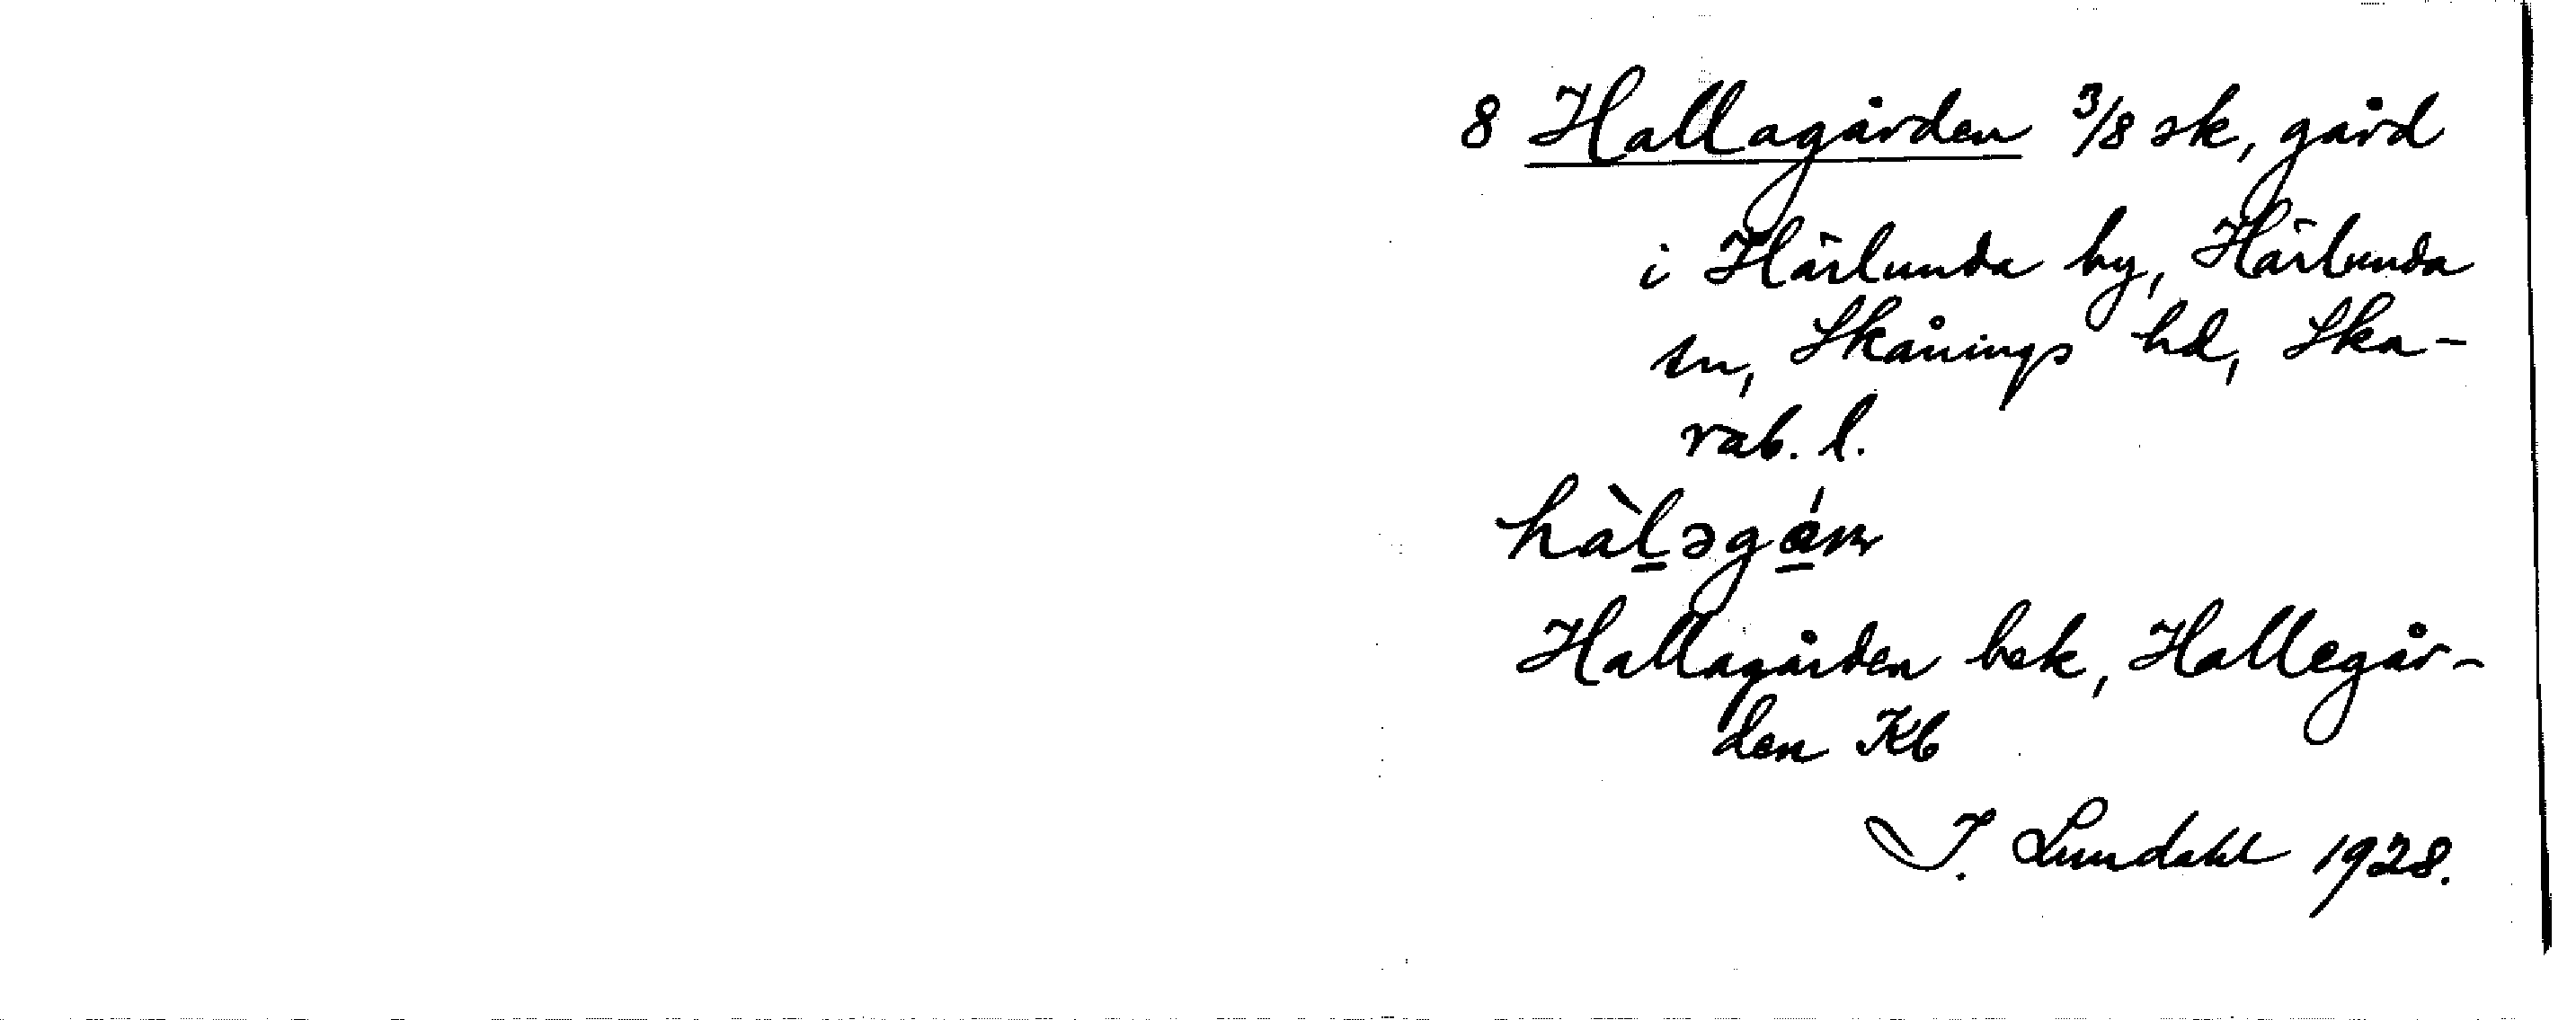 8 Hallagården 3/8 sk, gård
i Härlunda by, Härlunda
sn, Skånings hd, Ska-
rab. l.
hàl̠əgá̠ɳ
Hallagården bek, Hallegår-
den Kb
I. Lundahl 1928.